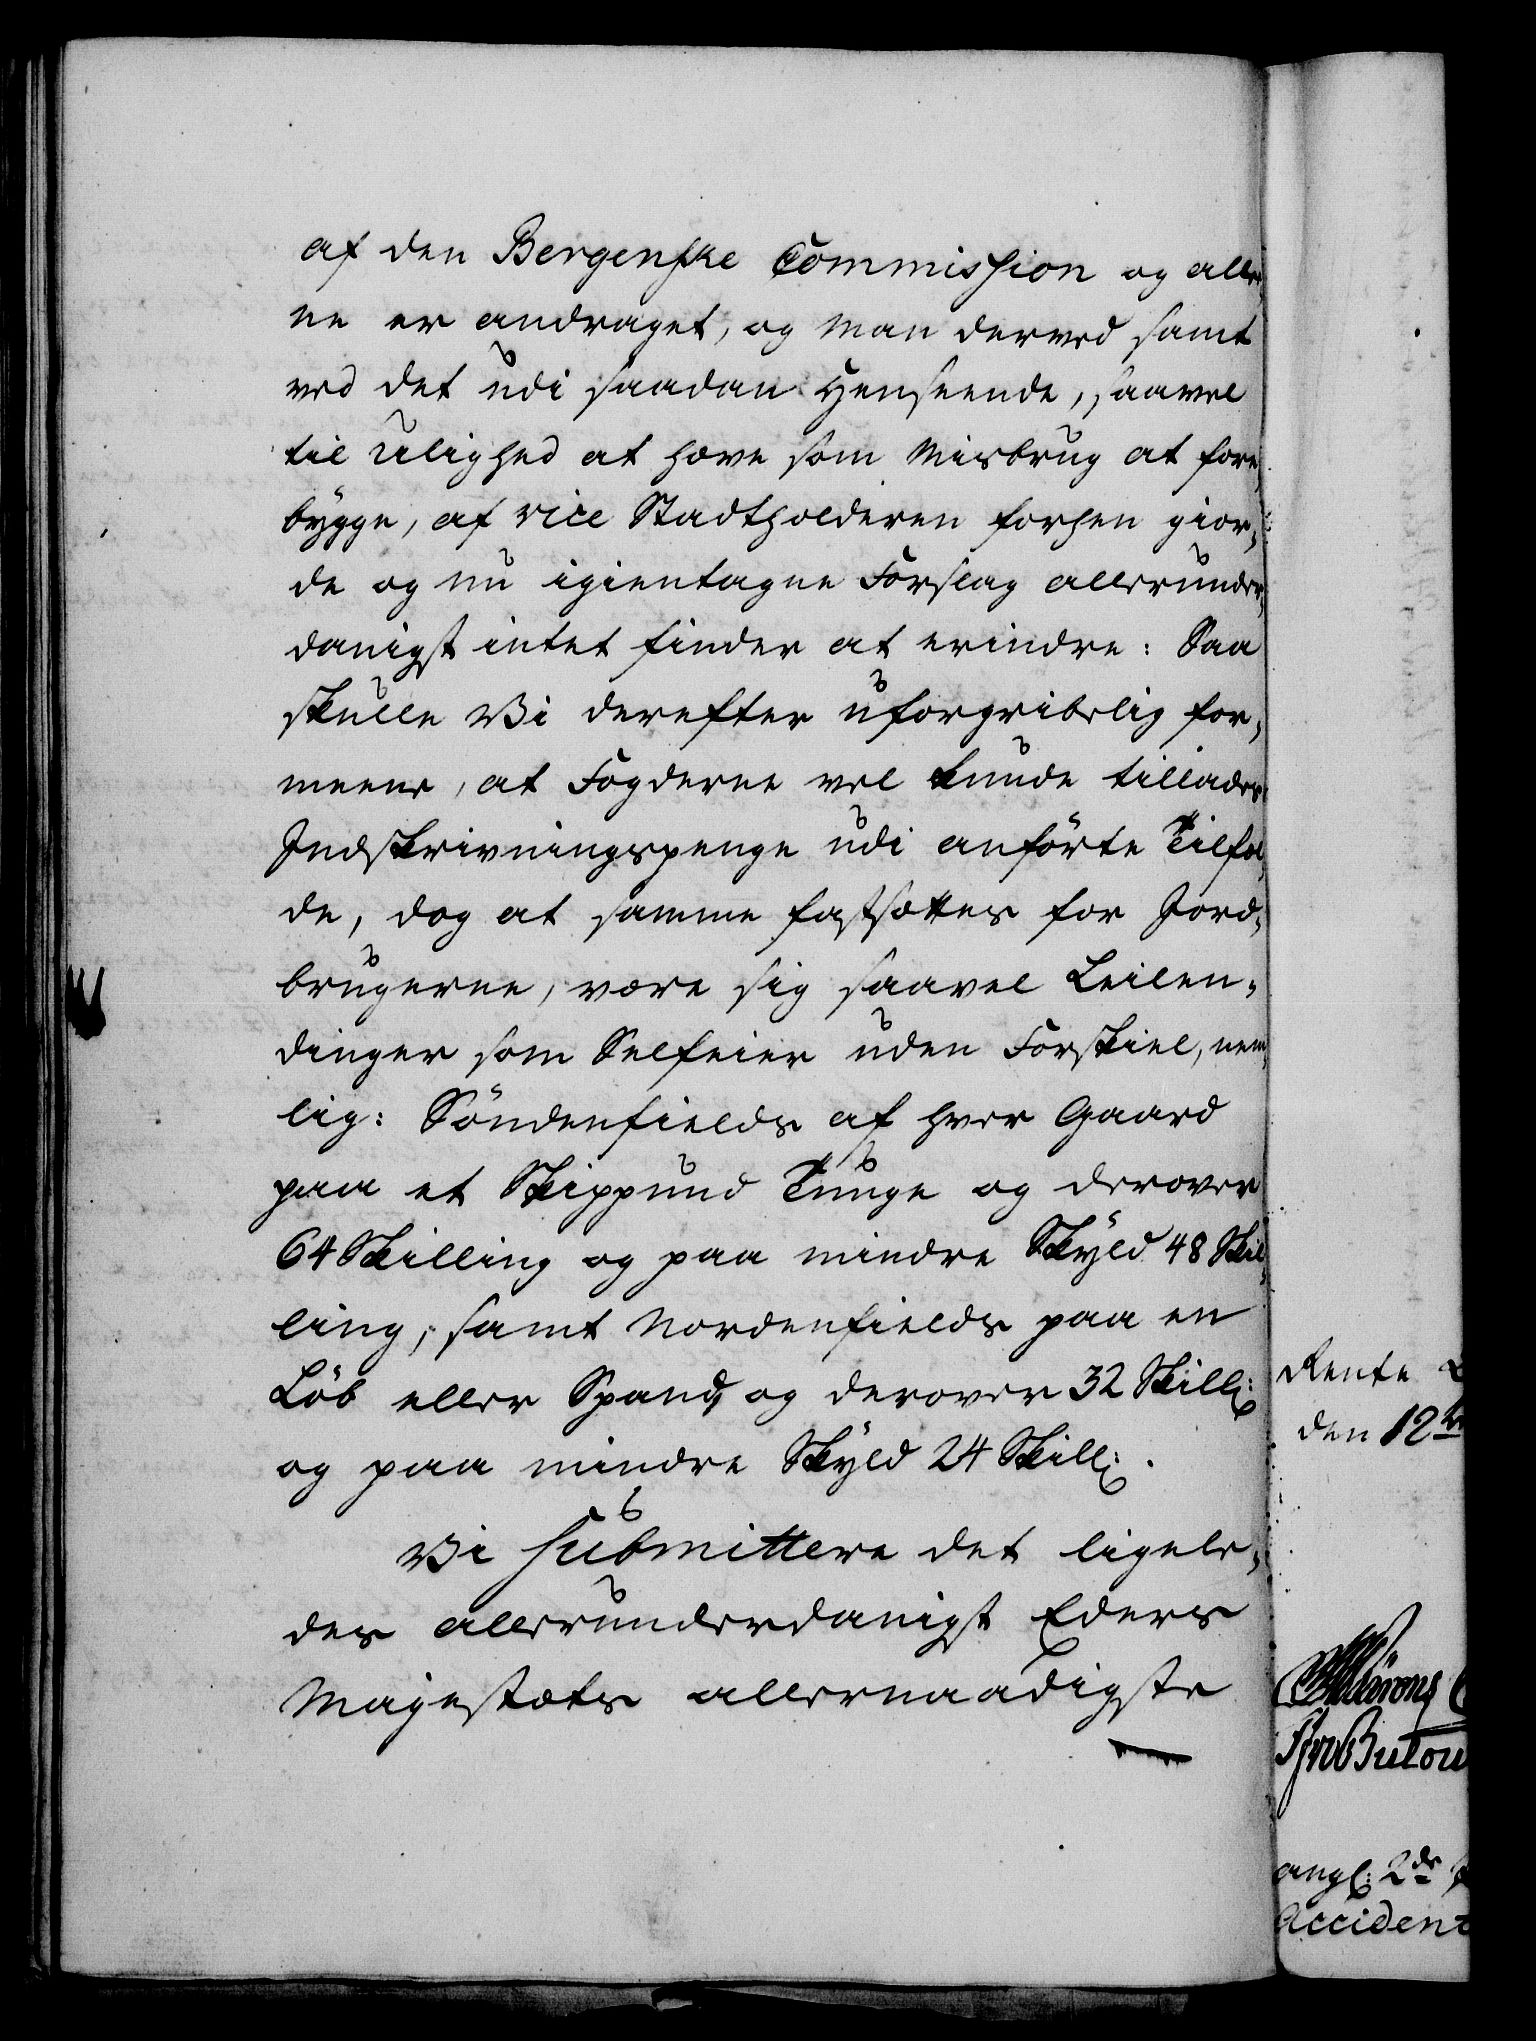 af den Bergenske Commission og alle,
ne er andraget, og man derved samt
ved det udi saadan Henseende, saavel
til Ulighed at hæve som Misbrug at fore,
bygge, af vice Stadtholderen forhen gior,
de og nu igientagne Forslag allerunder,
danigst intet finder at erindre: Saa
skulle Vi derefter uforgribelig for,
meene, at Fogderne vel kunde tillades
Indskrivningspenge udi anførte Tilfæl,
de, dog at samme fastsættes for Jord,
brugerne, være sig saavel Leilen,
dinger som Selfeier uden Forskiel, nem,
lig: Söndenfields af hver Gaard
paa et Skippund Tunge og derover
64 Skilling og paa mindre Skÿld 48 Skil,
ling, samt Nordenfields paa en
Löb eller Spand og derover 32 Skill:
og paa mindre Skÿld 24 Skill:.
Vi submittere det ligele,
des allerunderdanigst Eders
Majestæts allernaadigste
Rente
den 12te
angl: 2de
Accident